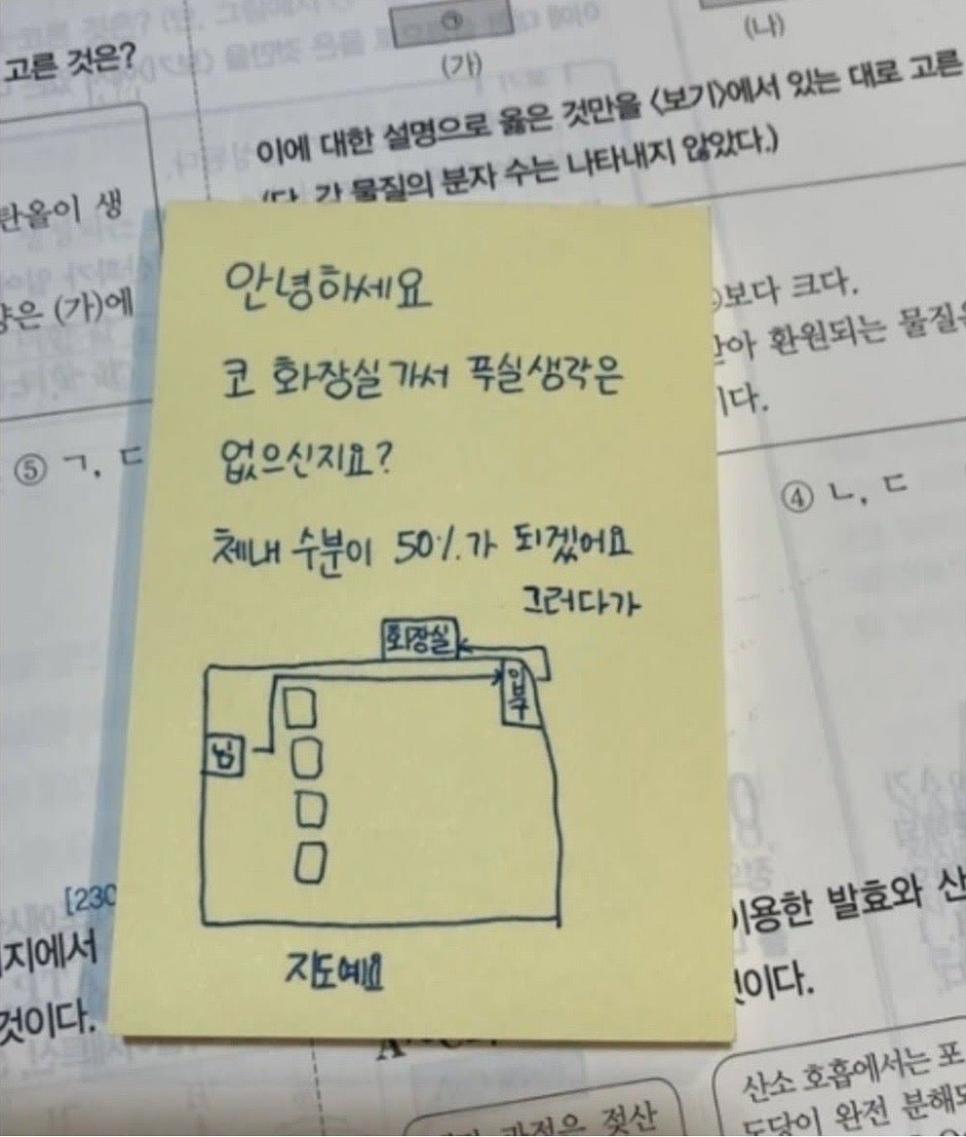 고른 것은?
㉠
(가)
(나)
이에 대한 설명으로 옳은 것만을 <보기>에서 있는 대로 고른
(단, 각 물질의 분자 수는 나타내지 않았다.)
탄올이 생
(가)에
보다 크다.
환원되는 물질은
이다.
⑤ ㄱ, ㄷ
④ ㄴ, ㄷ
안녕하세요
코 화장실 가서 푸실생각은
없으신지요?
체내 수분이 50%가 되겠어요
그러다가
화장실
입구
님
지도예요
[230
지에서
것이다.
이용한 발효와 산
것이다.
산소 호흡에서는 포
도당이 완전 분해되
과정은 젖산